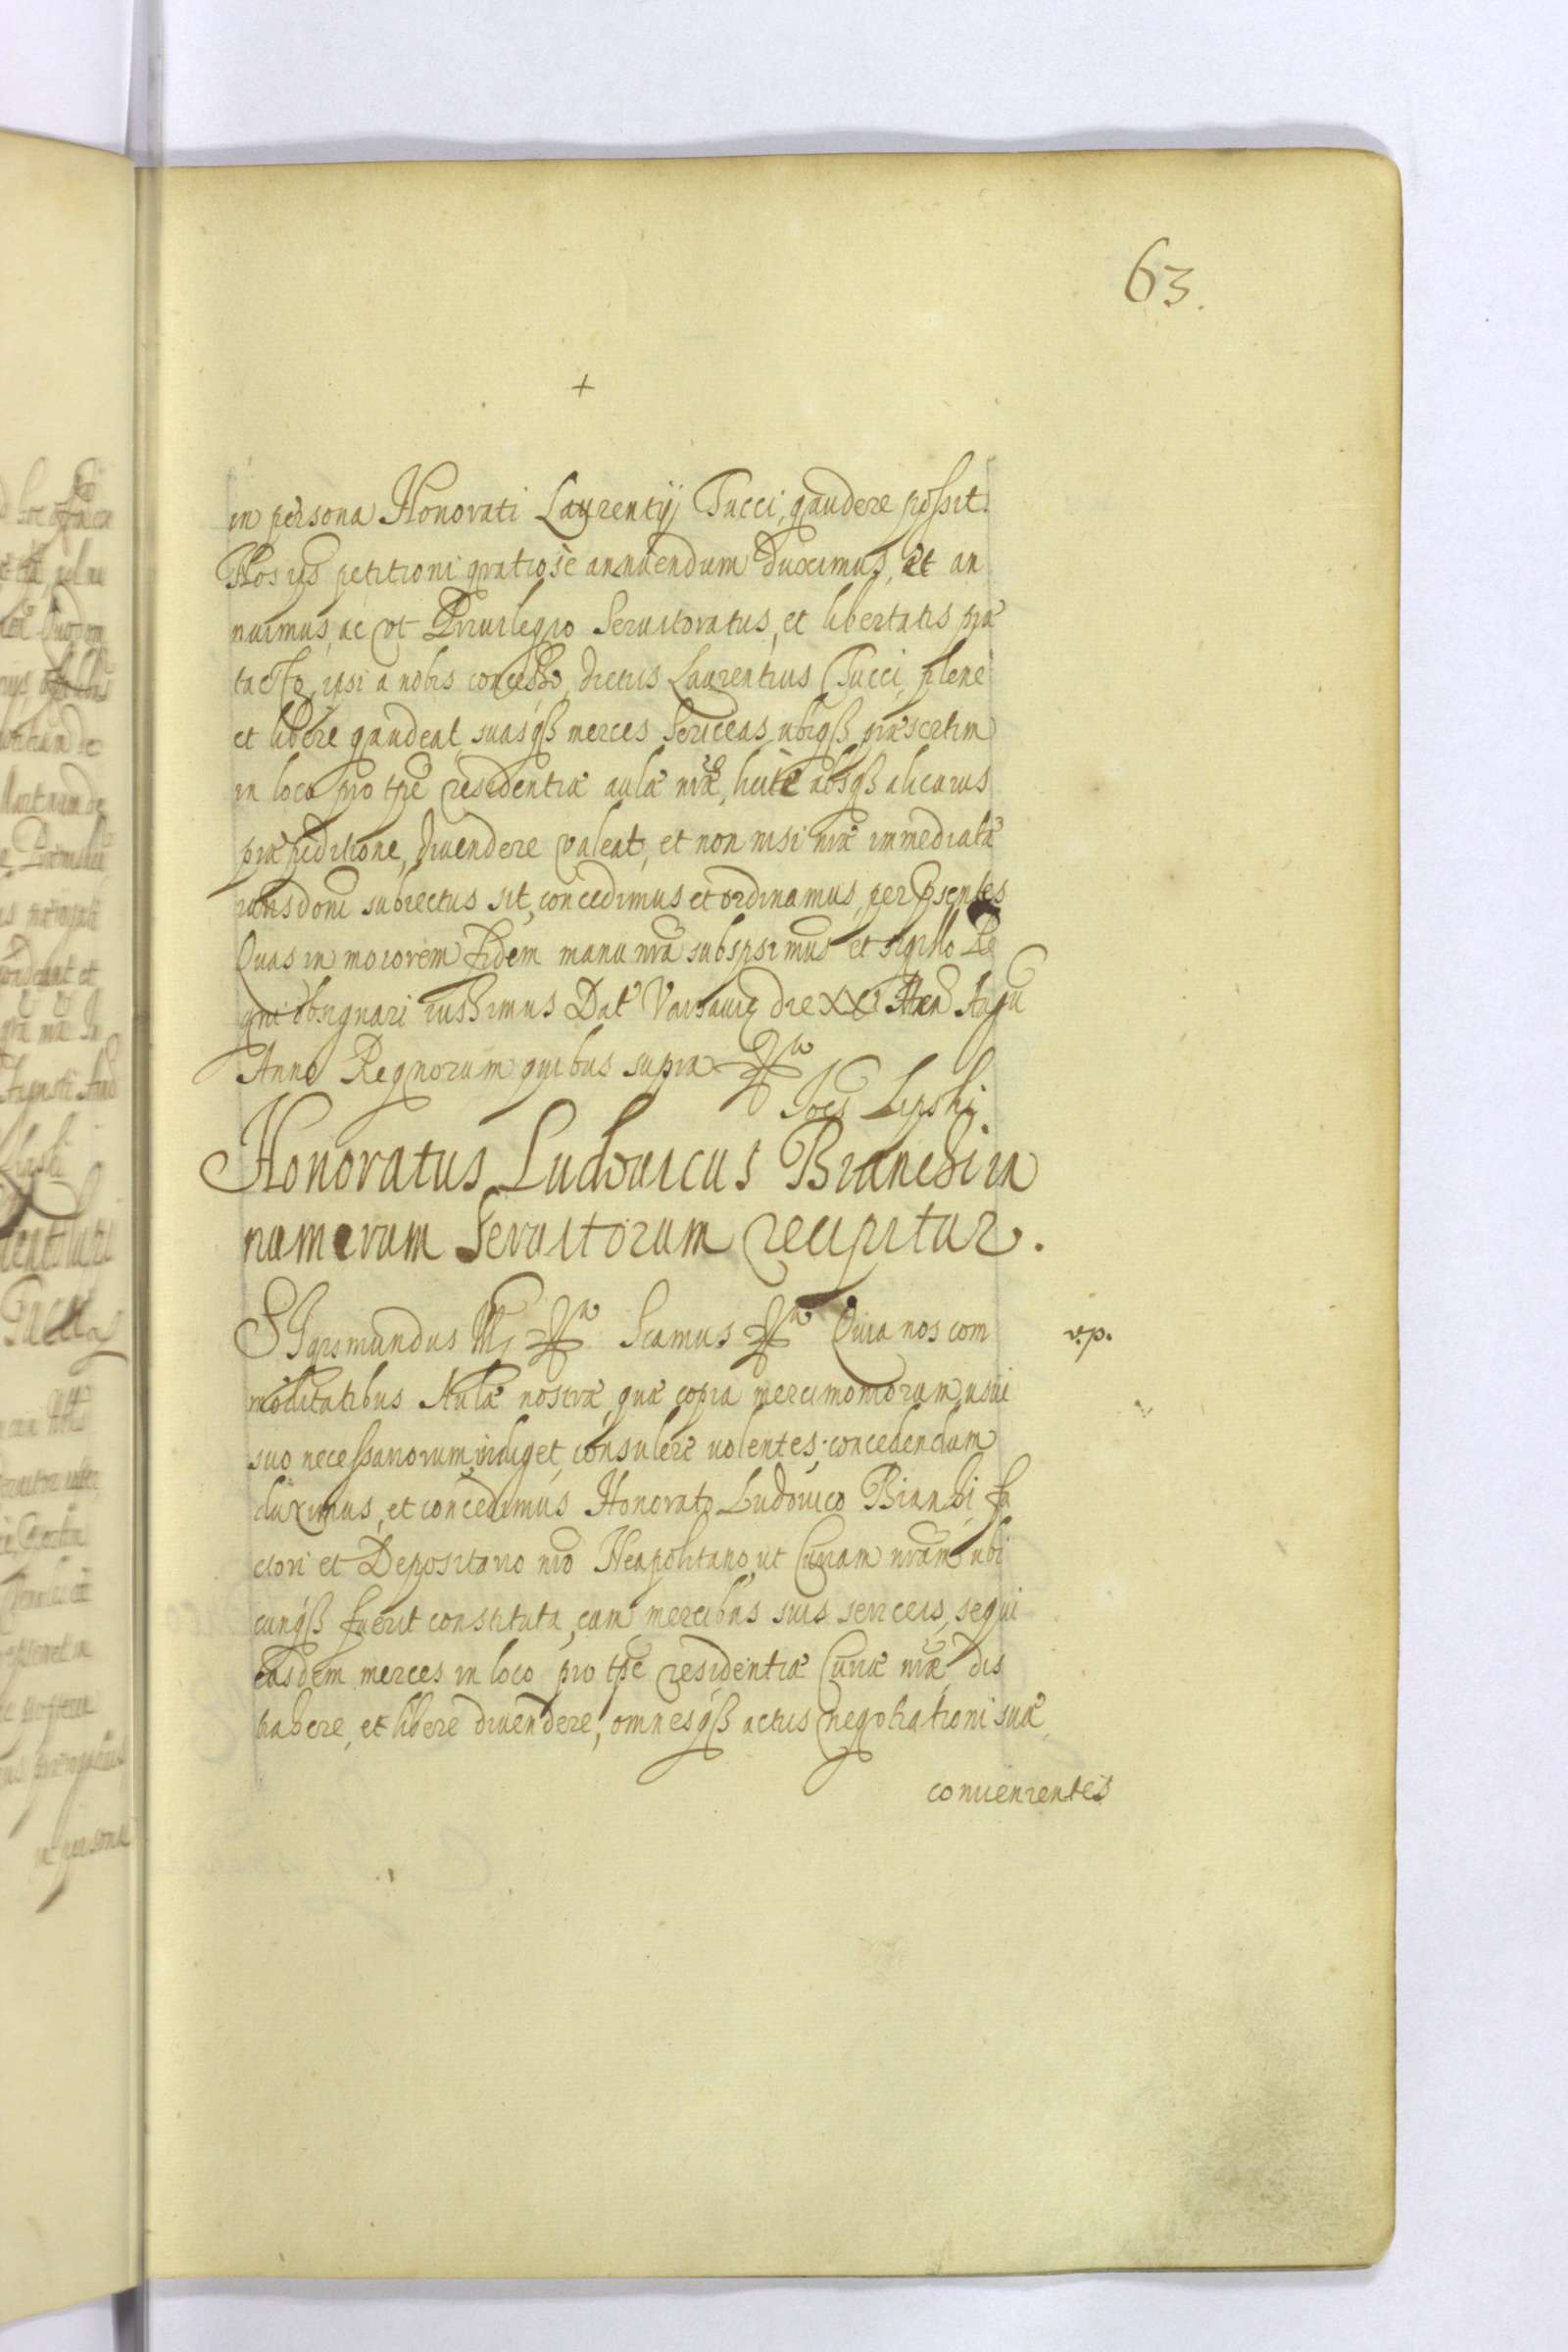 63.
+
in persona Honorati Laurentij Tucci, gaudere possit.
Nos ijs petitioni gratiosè annuendum duximus, et an
nuimus, ac ut Priuilegio Seruitoratus, et libertatis præ
tacto, ipsi a nobis concesso, dictus Laurentius Tucci, plene
et libere gaudeat, suasqß merces sericeas, ubiqß præsertim
in loco pro tpe residentiæ aulæ nræ, licitè absqß alicuius
præpeditione, diuendere valeat, et non nisi nræ immediatæ
iurisdoni subiectus sit, concedimus et ordinamus, per pñtes
Quas in maiorem fidem manu nra subspsimus et sigillo Re
gni obsignari iussimus Dat Varsauiæ die XXI Augu
Anno Regnorum quibus supra
Joes Lipski.
Honoratus Ludouicus Bianchi in
numerum Seruitorum recipitur.
SIgismundus Scamus Quia nos com
v.p.
moditatibus Aulæ nostræ, quæ copia mercimoniorum, usui
suo necessariorum, indiget, consulere uolentes; concedendum
duximus, et concedimus Honorato Ludouico Bianchi, fa
ctori et Depositario nro Neapolitano, ut Curiam nram ubi
cunqß fuerit constituta, cum mercibus suis sericeis, sequi
easdem merces in loco pro tpe residentiæ Curiæ nræ, dis
trahere, et libere diuendere, omnesqß actus negotiationi suæ
conuenientes